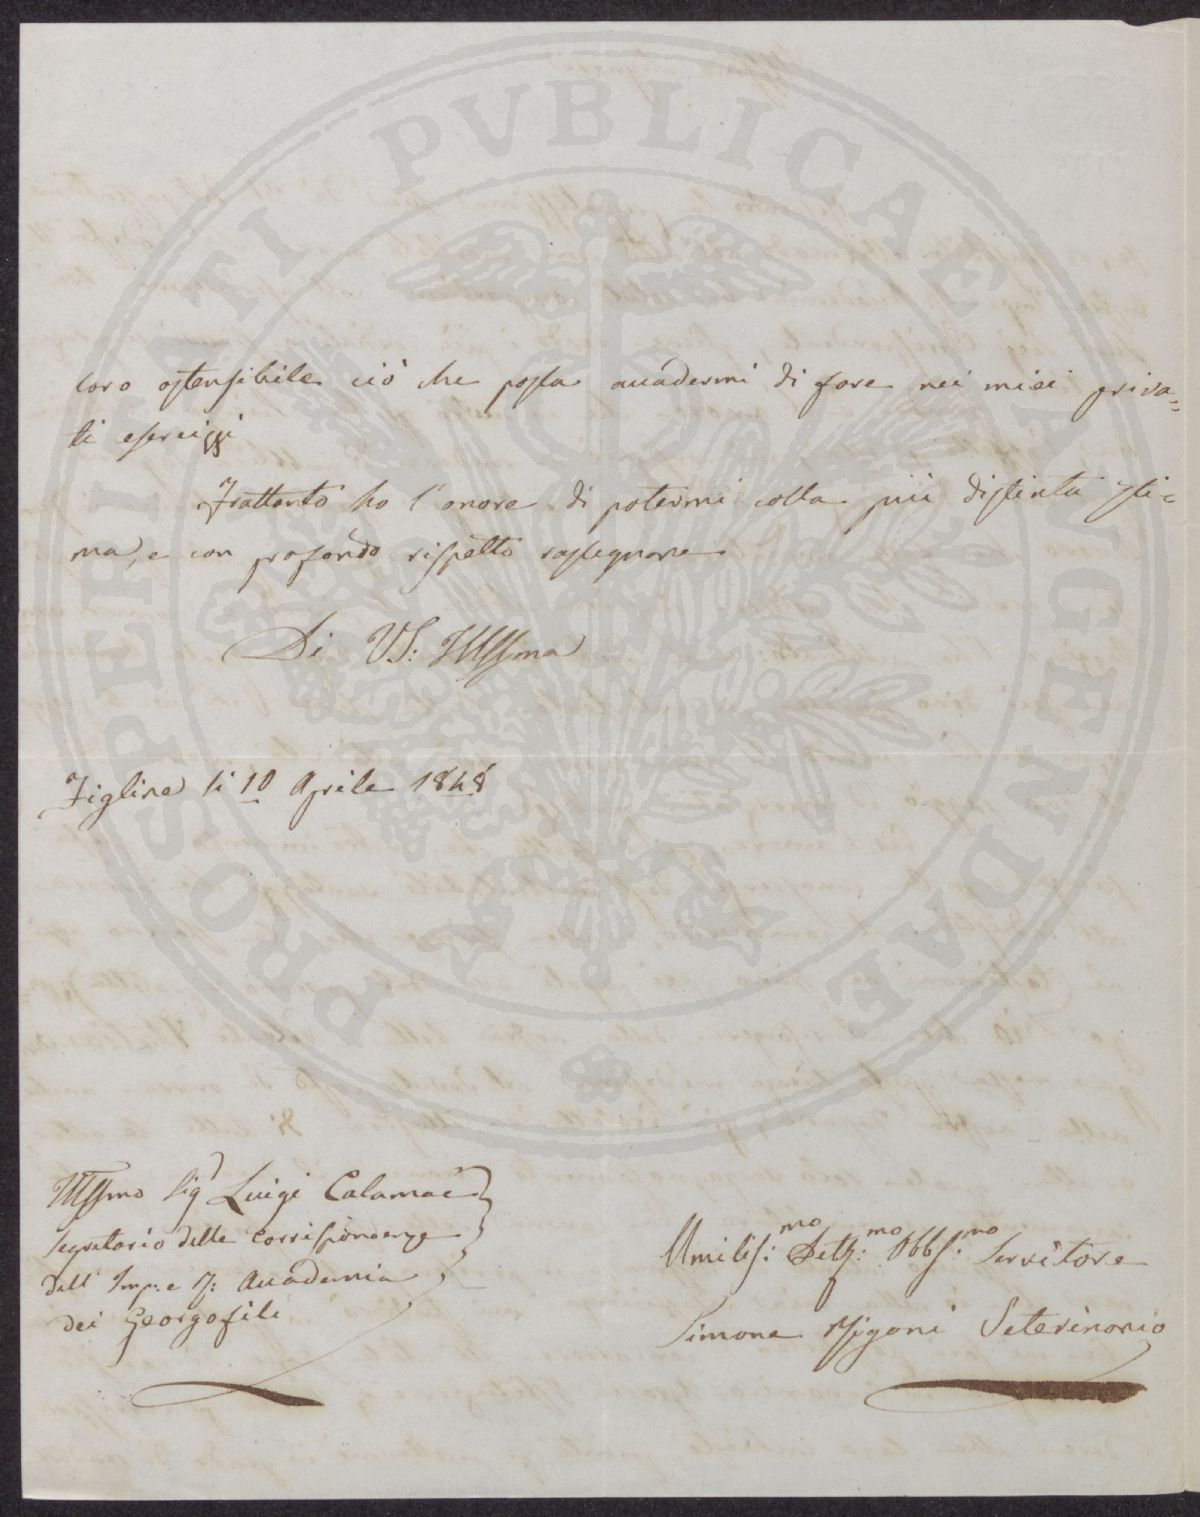 PROSPERITATI PVBLICAE AVGENDAE
loro ostensibile ciò che possa accadermi di fare nei miei priva=
ti esercizj
Frattanto ho l'onore di potermi colla più distinta sti=
ma, e con profondo rispetto rassegnare
Di VS: Illssma
Figline li 10 Aprile 1848
Illssmo Sigr Luigi Calamai
Segretario delle Corrispondenze
dell' Imp: e R: Accademia
dei Georgofili
Umilis:mo Dev:mo Obbl:mo Servitore
Simone Veterinario